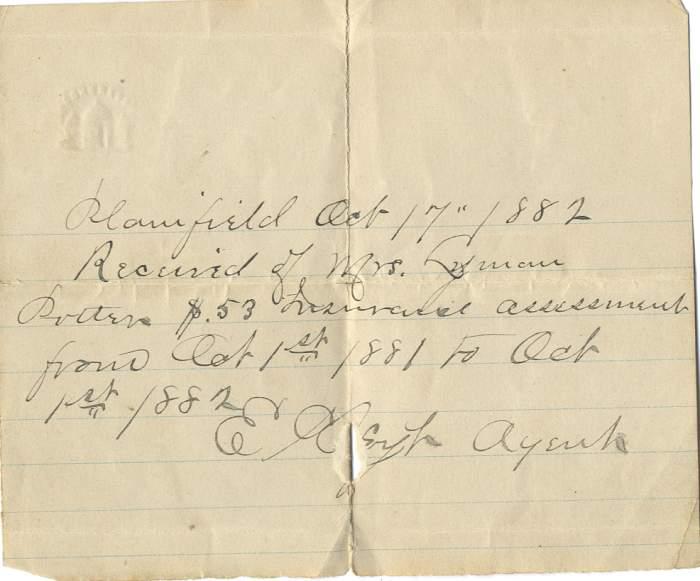 Plainfield Oct 17" 1882
Received of Mrs. Lyman
Potter $.53 Insurance assessment
from Oct 1st 1881 to Oct
1st 1882
E Agent